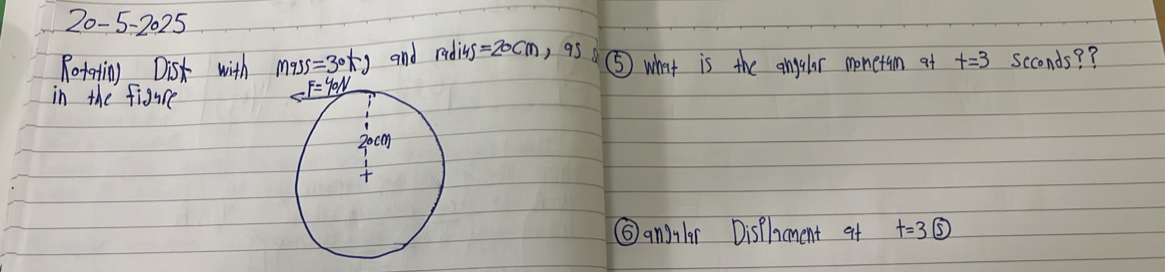 20-5-2025
Rotating Disk with mass=30kg and radius=20cm, as
in the figure
F=40N
20cm
⑤ what is the angular monetam at t=3 seconds??
⑥ angular Displacment at t=3Ⓢ